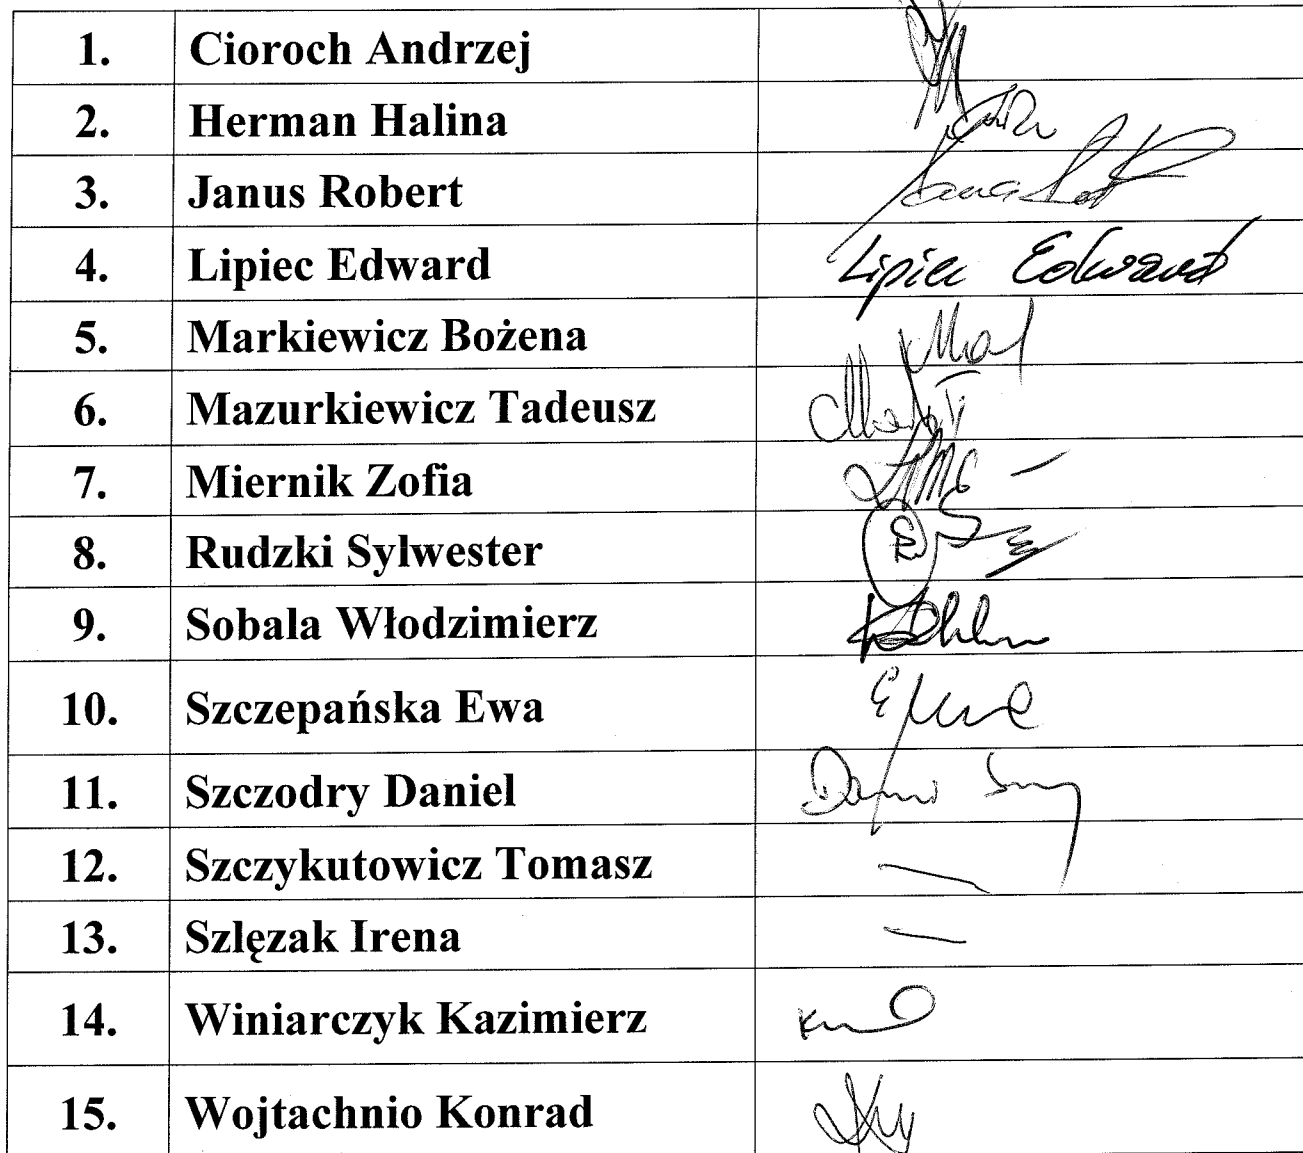 1. Cioroch Andrzej
2. Herman Halina
3. Janus Robert
4. Lipiec Edward Lipiec Edward
5. Markiewicz Bożena
6. Mazurkiewicz Tadeusz
7. Miernik Zofia
8. Rudzki Sylwester
9. Sobala Włodzimierz
10. Szczepańska Ewa
11. Szczodry Daniel
12. Szczykutowicz Tomasz —
13. Szlęzak Irena —
14. Winiarczyk Kazimierz
15. Wojtachnio Konrad